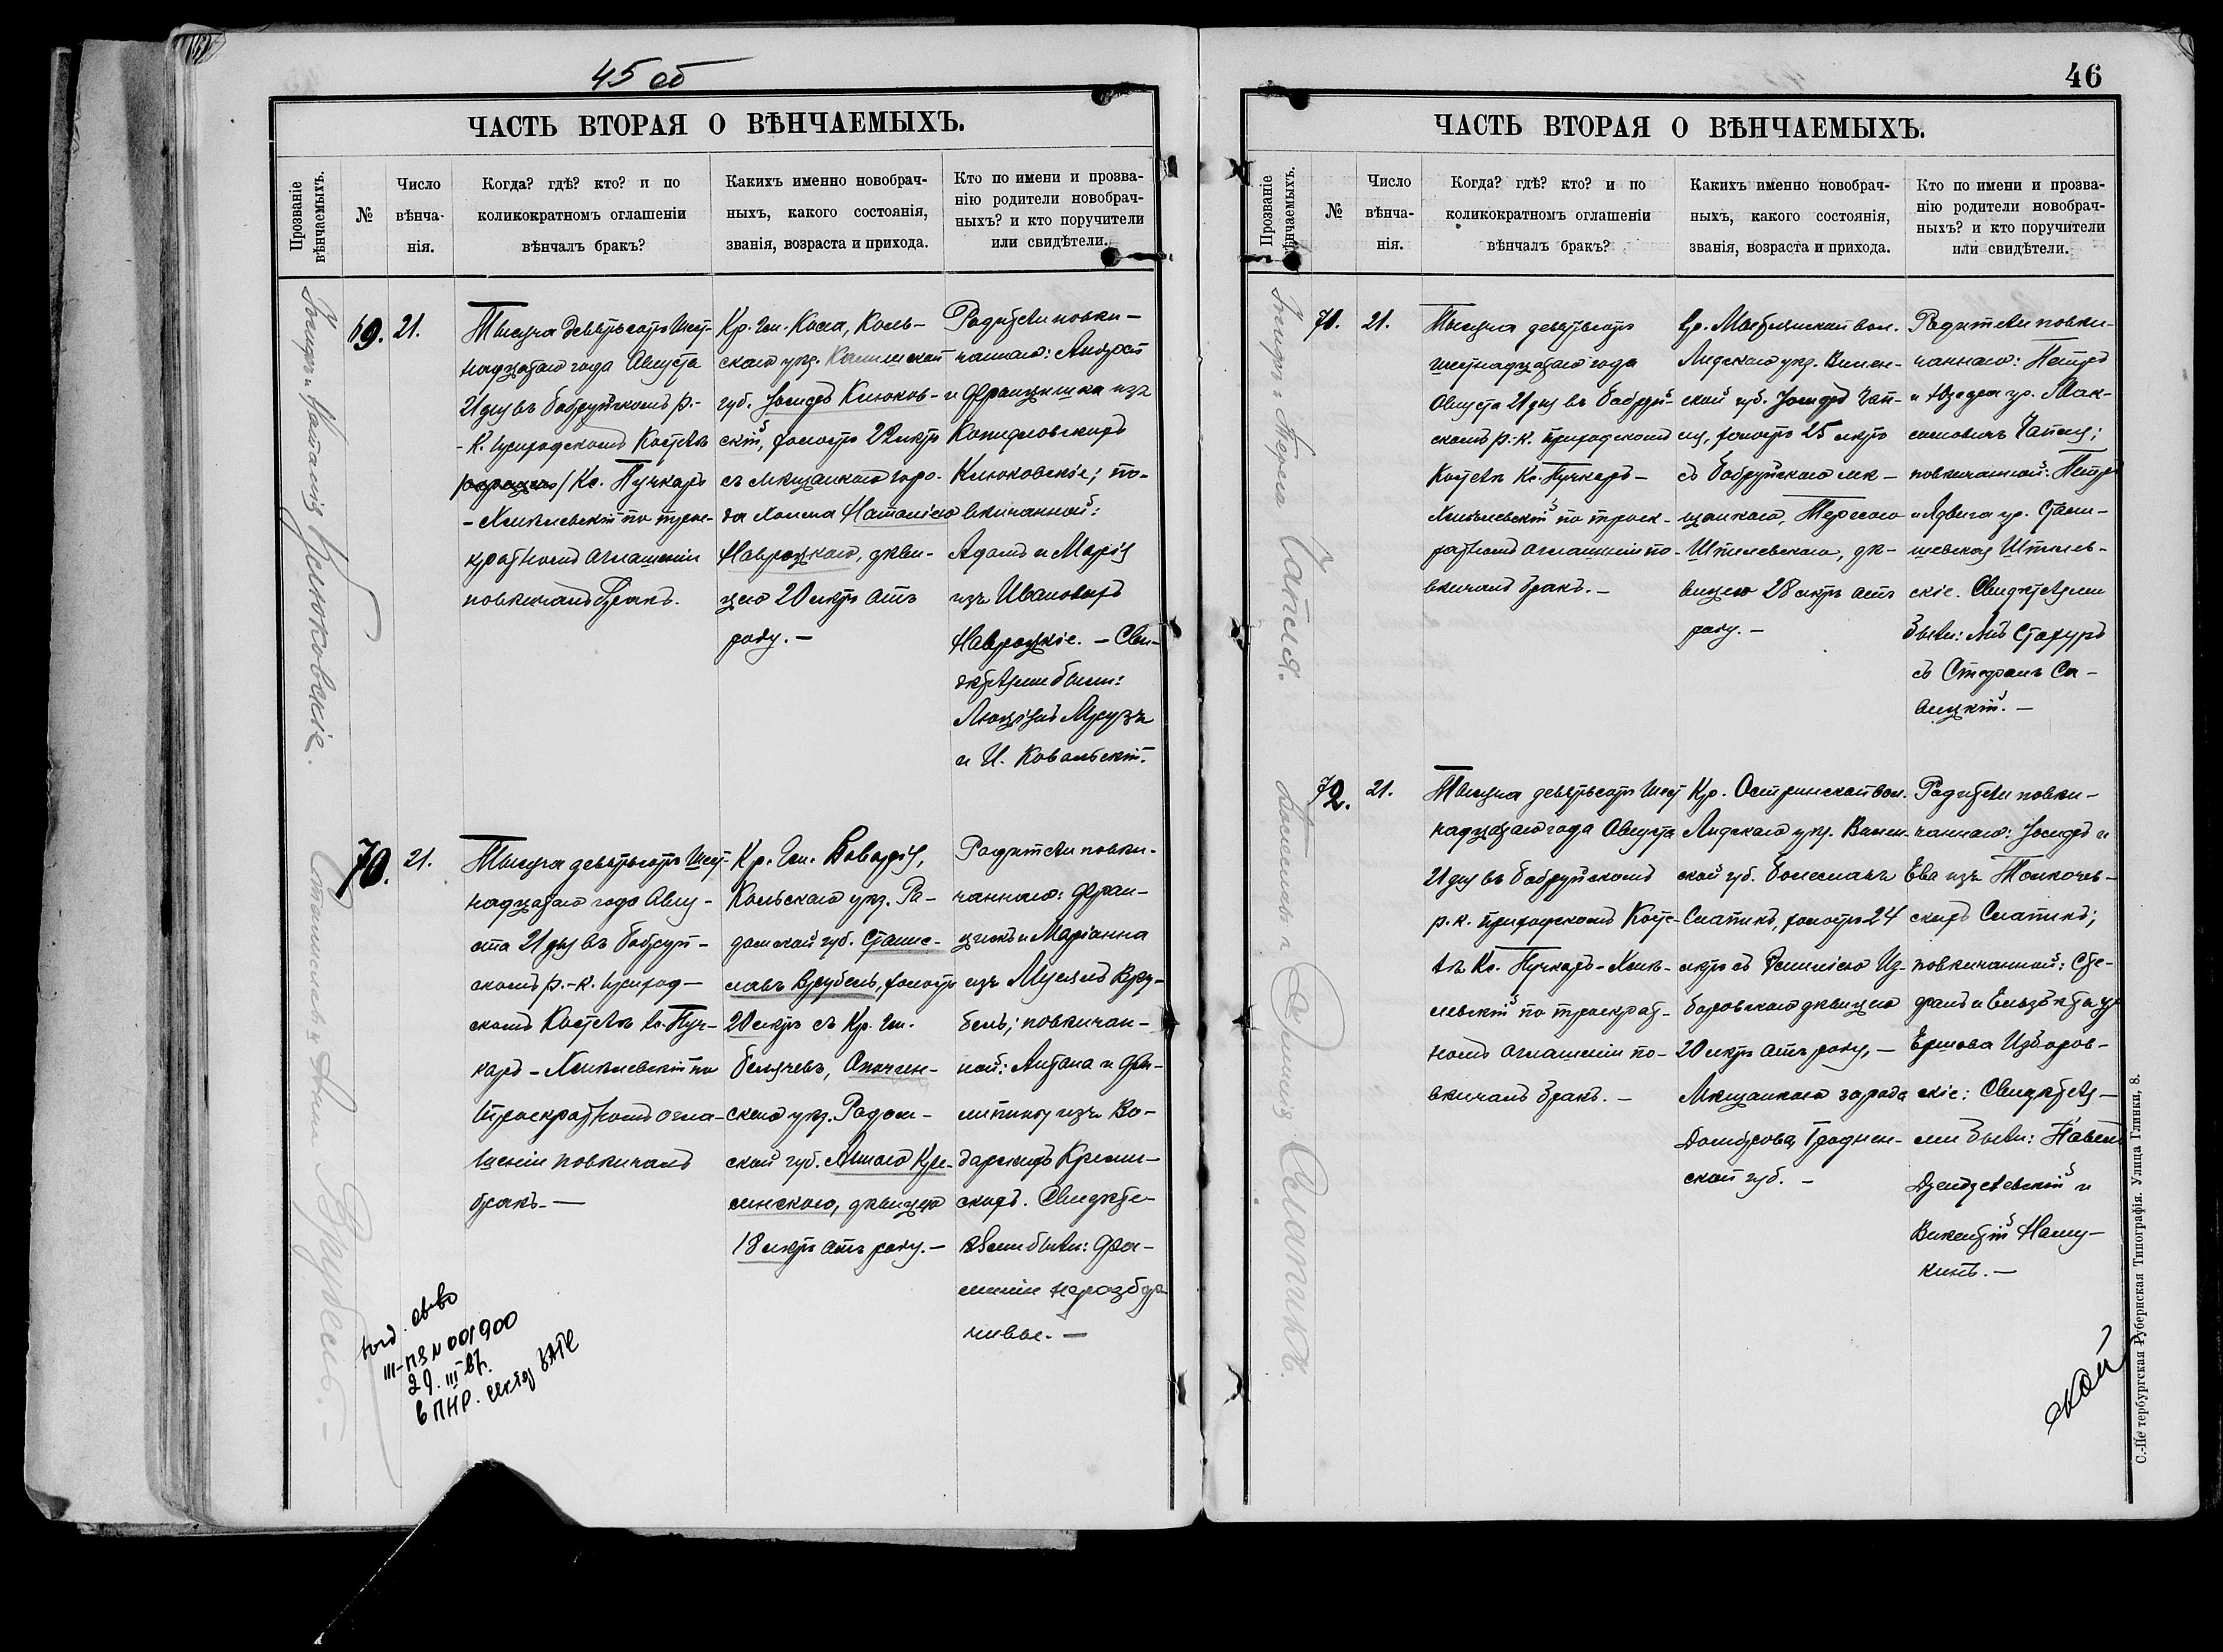 45 об
ЧАСТЬ ВТОРАЯ О ВѢНЧАЕМЫХЪ.
Прозваніе
вѣнчаемыхъ.
№
Число
вѣнча-
нія.
Когда? гдѣ? кто? и по
коликократномъ оглашеніи
вѣнчалъ бракъ?
Какихъ именно новобрач-
ныхъ, какого состоянія,
званія, возраста и прихода.
Кто по имени и прозва-
нію родители новобрач-
ныхъ? и кто поручители
или свидѣтели.
Іосифъ и Наталія Клюковскіе.
69.
21.
Тысяча девятьсотъ шест-
надцатаго года Августа
21 дня въ Бобруйскомъ р.-
-к. приходскомъ Костелѣ
Кс. Пучкаръ
-Хмѣлевскій по трое-
кратномъ оглашеніи
повѣнчалъ бракъ.
Кр. Гм. Косма, Коль-
скаго уѣз. Калишской
губ. Іосифъ Клюков-
скій, холостъ 22 лѣтъ
съ мѣщанкою горо-
да Холма Наталіею
Навроцкою, дѣви-
цею 20 лѣтъ отъ
роду. —
Родители повѣн-
чаннаго:
и Францишка изъ
Клюковскіе; по-
вѣнчанной:
Адамъ и Марія
изъ Ивановыхъ
Навроцкіе. — Сви-
дѣтелями были:
и И. Ковальскій.
Станиславъ и Анна Врубель. —
70.
21.
Тысяча девятьсотъ шест-
надцатаго года Авгу-
ста 21 дня въ Бобруй-
скомъ р.-к. приход-
скомъ Костелѣ Кс. Пуч-
каръ - Хмѣлевскій по
троекратномъ огла-
шеніи повѣнчалъ
бракъ. —
Кр. Гм.
уѣз. Ра-
домской губ. Станис-
лавъ Врубель, холостъ
20 лѣтъ съ Кр. Гм.
Бельчевъ, Опочин-
скаго уѣз. Радом-
ской губ. Анною Кре-
минскою, дѣвицею
18 лѣтъ отъ роду. —
Родители повѣн-
чаннаго: Фран-
цискъ и Маріанна
изъ Мусялъ Вру-
бель; повѣнчан-
ной: Антона и Фи-
липины изъ Во-
дарскихъ Кремин-
скихъ. Свидѣте-
лями были: Фа-
миліи неразбор
чивые. —
свво
III-ПЗ № 001900
29. III
в ПНР.
46
ЧАСТЬ ВТОРАЯ О ВѢНЧАЕМЫХЪ.
Прозваніе
вѣнчаемыхъ.
№
Число
вѣнча-
нія.
Когда? гдѣ? кто? и по
коликократномъ оглашеніи
вѣнчалъ бракъ?
Какихъ именно новобрач-
ныхъ, какого состоянія,
званія, возраста и прихода.
Кто по имени и прозва-
нію родители новобрач-
ныхъ? и кто поручители
или свидѣтели.
Іосифъ и Тереса Чапля.
71.
21.
Тысяча девятьсотъ
шестнадцатаго года
Августа 21 дня въ Бобруй-
скомъ р.-к. приходскомъ
Костелѣ Кс. Пучкаръ -
Хмѣлевскій по троек-
ратномъ оглашеніи по-
вѣнчалъ бракъ. —
Кр. вол.
Лидскаго уѣз. Вилен-
ской губ. Іосифъ Чап-
ля, холостъ 25 лѣтъ
съ Бобруйскою мѣ-
щанкою, Тересою
Штылевскою, дѣ-
вицею 28 лѣтъ отъ
роду. —
Родители повѣн-
чаннаго: Петръ
и Юзефа ур. Мак-
симовичъ Чапля;
повѣнчанной: Петръ
и Ядвига ур. Стани-
шевская Штылев-
скіе. Свидѣтелями
были:
съ Стефанъ Са-
вицкій. —
Болеславъ и Эмилія Слапикъ.
72.
21.
Тысяча девятьсотъ шест
надцатаго года Августа
21 дня въ Бобруйскомъ
р.к. приходскомъ Косте-
лѣ Кс. Пучкаръ-Хмѣ-
левскій по троекрат-
номъ оглашеніи по-
вѣнчалъ бракъ. —
Кр. Остринской вол.
Лидскаго уѣз. Вилен-
ской губ. Болеславъ
Слапикъ, холостъ 24
лѣтъ съ Эмиліею Из-
боровскою дѣвицею
20 лѣтъ отъ роду, —
Мѣщанкою города
Домброва, Гроднен-
ской губ. —
Родители повѣн-
чаннаго: Іосифъ и
Ева изъ Толкачев-
скихъ Слапикъ;
повѣнчанной: Сте-
фанъ и Елизавета ур
Ершова Изборов-
скіе: Свидѣтеля-
ми были: Павелъ
и
Викентій
ской
С.-Петербургская Губернская Типографія. Улица Глинки, 8.